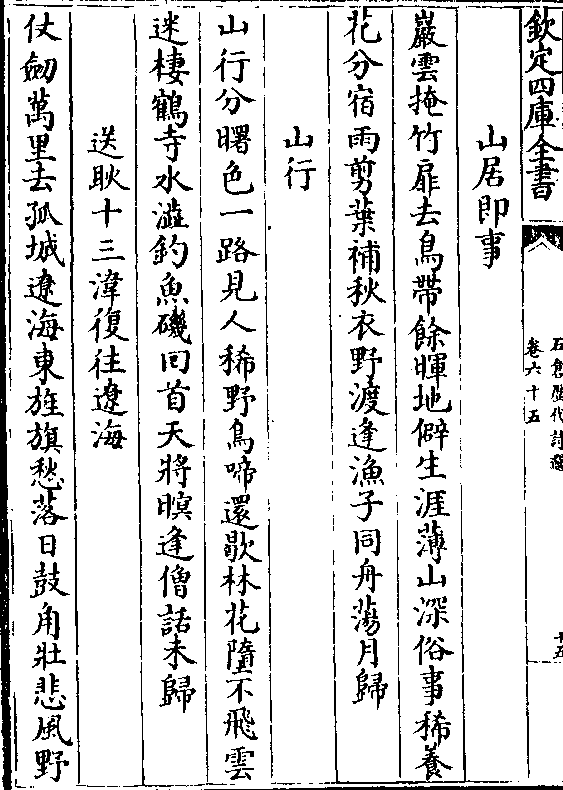 欽定四庫全書
石倉歷代詩選
卷六十五
十五
山居即事
巖雲掩竹扉去鳥帶餘暉地僻生涯薄山深俗事稀養
花分宿雨剪葉補秋衣野渡逢漁子同舟蕩月歸
山行
山行分曙色一路見人稀野鳥啼還歇林花墮不飛雲
迷棲鶴寺水澁釣魚磯回首天將暝逢僧話未歸
送耿十三湋復往遼海
仗劒萬里去孤城遼海東旌旗愁落日鼓角壯悲風野